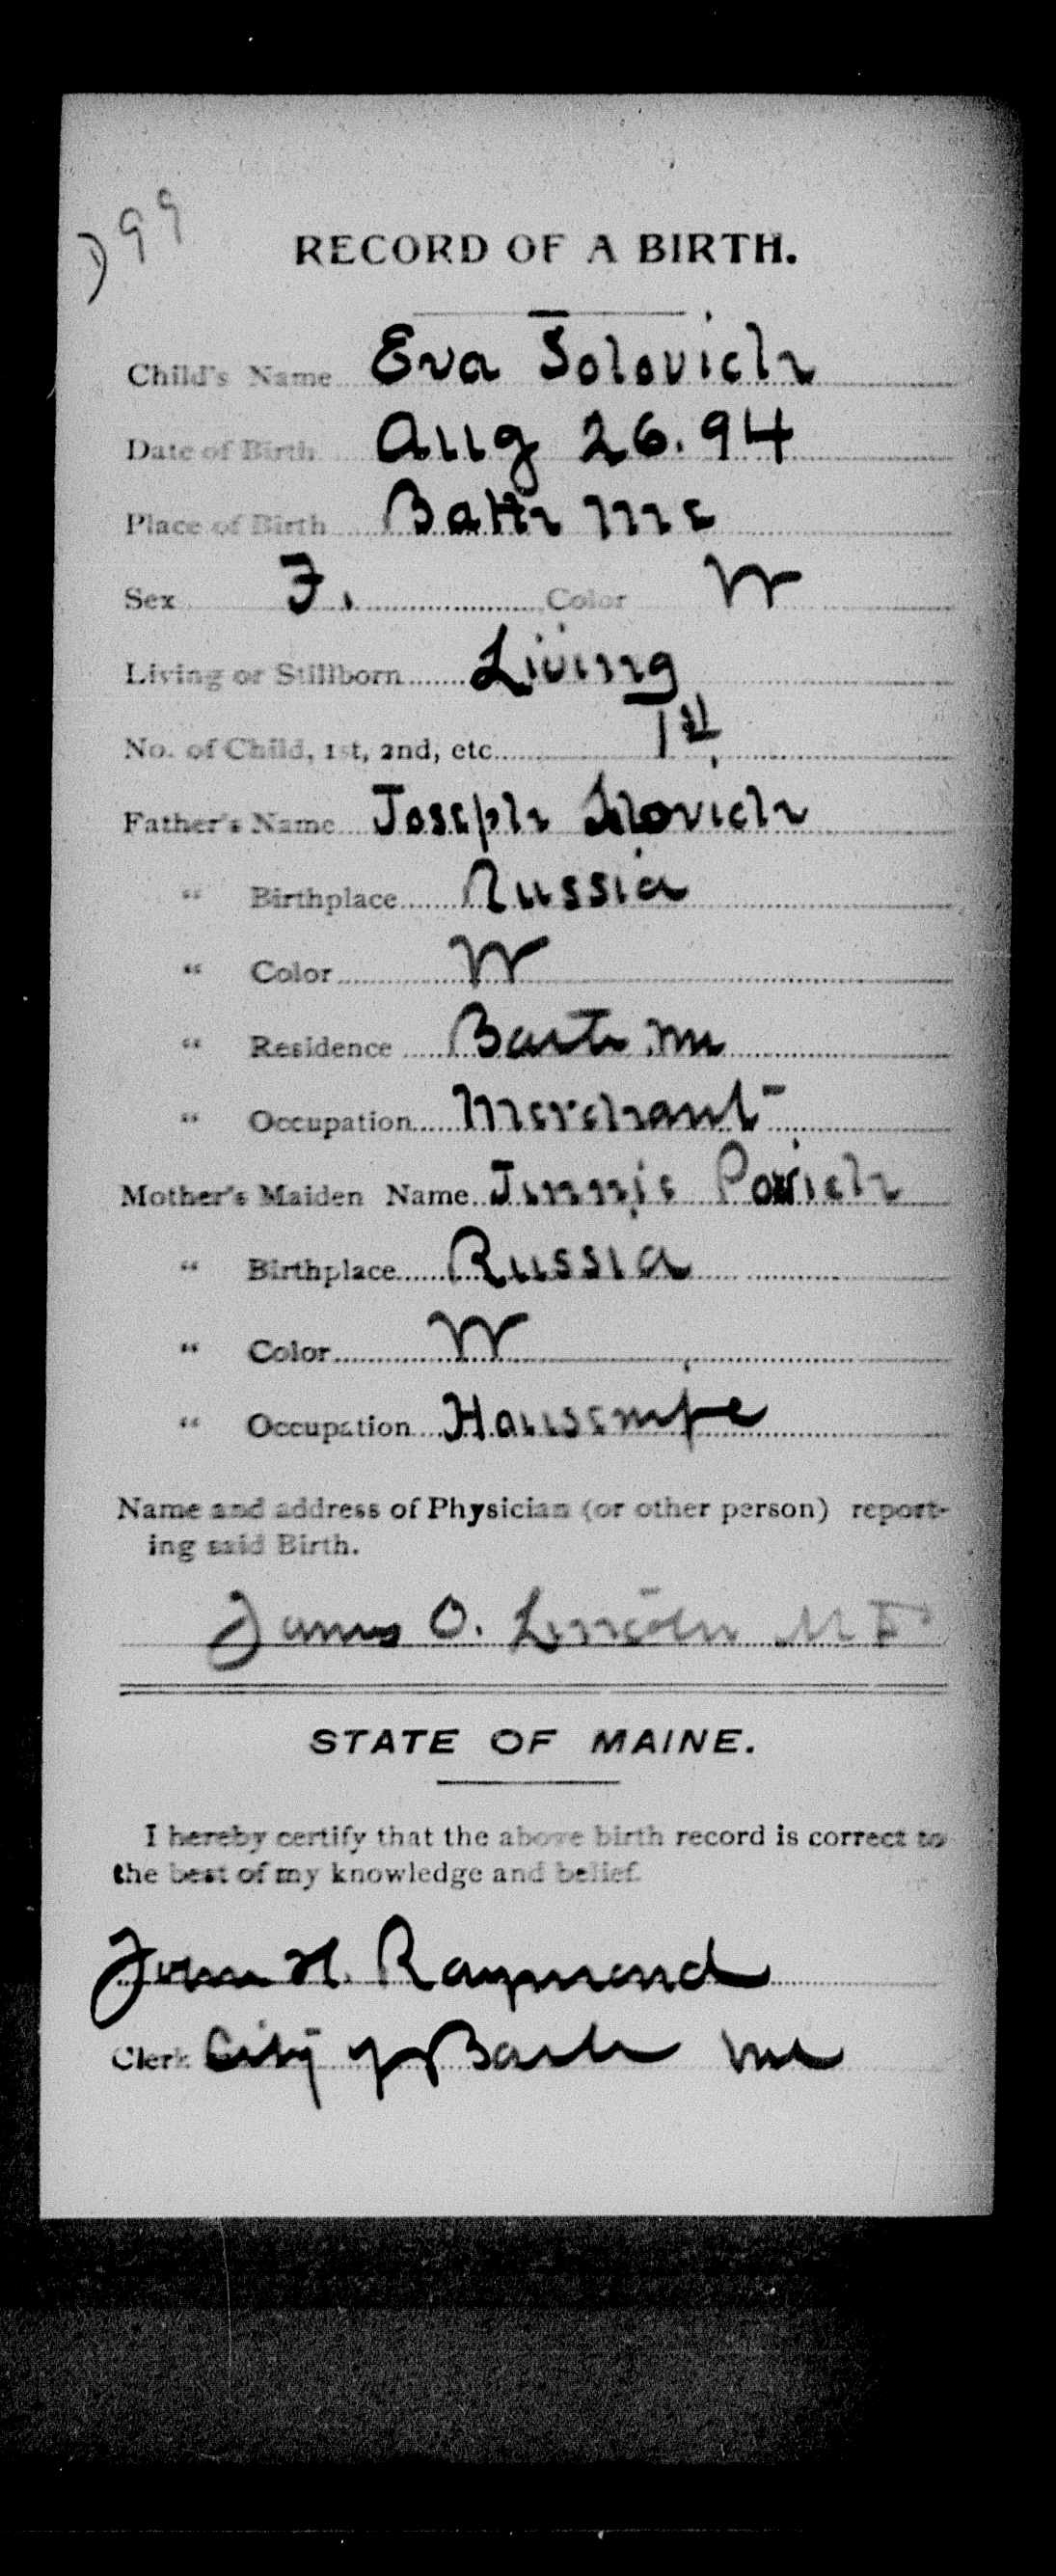 99
RECORD OF A BIRTH.
Child's Name Eva Solovich
Date of Birth Aug 26. 94
Place of Birth Bath Me
Sex F. Color W
Living or Stillborn Living
No. of Child, 1st, 2nd, etc 1st
Father's Name Joseph Solovich
" Birthplace Russia
" Color W
" Residence Bath Me
" Occupation Merchant
Mother's Maiden Name Jennie
" Birthplace Russia
" Color W
" Occupation Housewife
Name and address of Physician (or other person) report-
ing said Birth.
James O. Lincoln M D
STATE OF MAINE.
I hereby certify that the above birth record is correct to
the best of my knowledge and belief.
H. Raymond
Clerk City of Bath Me